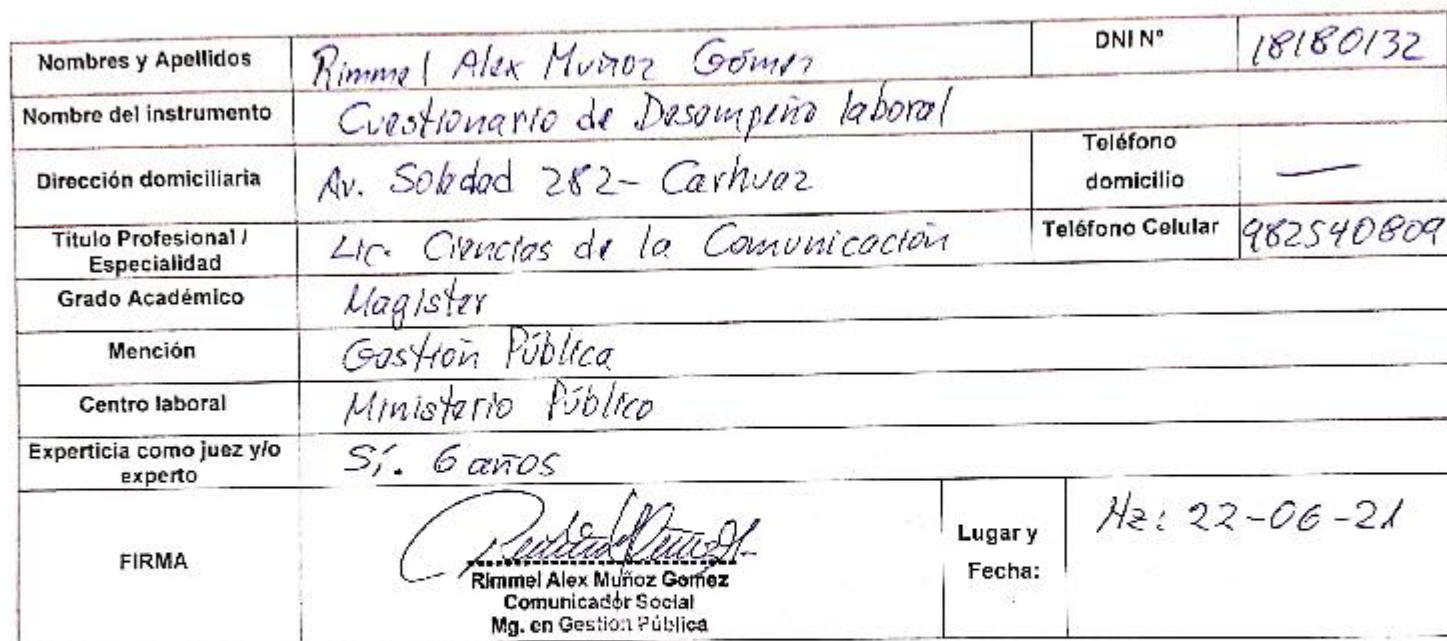 Nombres y Apellidos Rimmel Alex Muñoz Gómez DNI N° 18180132
Nombre del instrumento Cuestionario de Desempeño laboral
Dirección domiciliaria Av. Soledad 282- Carhuaz Teléfono domicilio —
Título Profesional / Especialidad Lic. Ciencias de la Comunicación Teléfono Celular 982540809
Grado Académico Magister
Mención Gestión Pública
Centro laboral Ministerio Público
Experticia como juez y/o experto Sí. 6 años
FIRMA
Rimmel Alex Muñoz Gomez
Comunicador Social
Mg. en Gestion Pública
Lugar y Fecha: Hz: 22-06-21